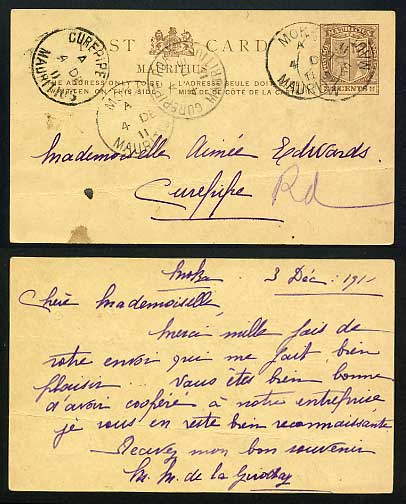 POST CARD
MAURITIUS
THE ADDRESS ONLY TO BE WRITTEN ON THIS SIDE. L'ADRESSE SEULE DOIT ÊTRE MISE DE CE CÔTÉ DE LA CARTE
MAURITIUS
2 CENTS 2
CUREPIPE
A
4 DE
11
MAURITIUS
MOKA
A
4 DE
11
MAURITIUS
MOKA
A
4 DE
11
MAURITIUS
Mademoiselle Aimée Edwards.
Curepipe Rd
Moka, 3 Déc: 1911
Chère Mademoiselle,
Merci mille fois de
votre envoi qui me fait bien
plaisir. Vous êtes bien bonne
d'avoir coopéré à notre entreprise
je vous en reste bien reconnaissante
Recevez mon bon souvenir
M. M. de la